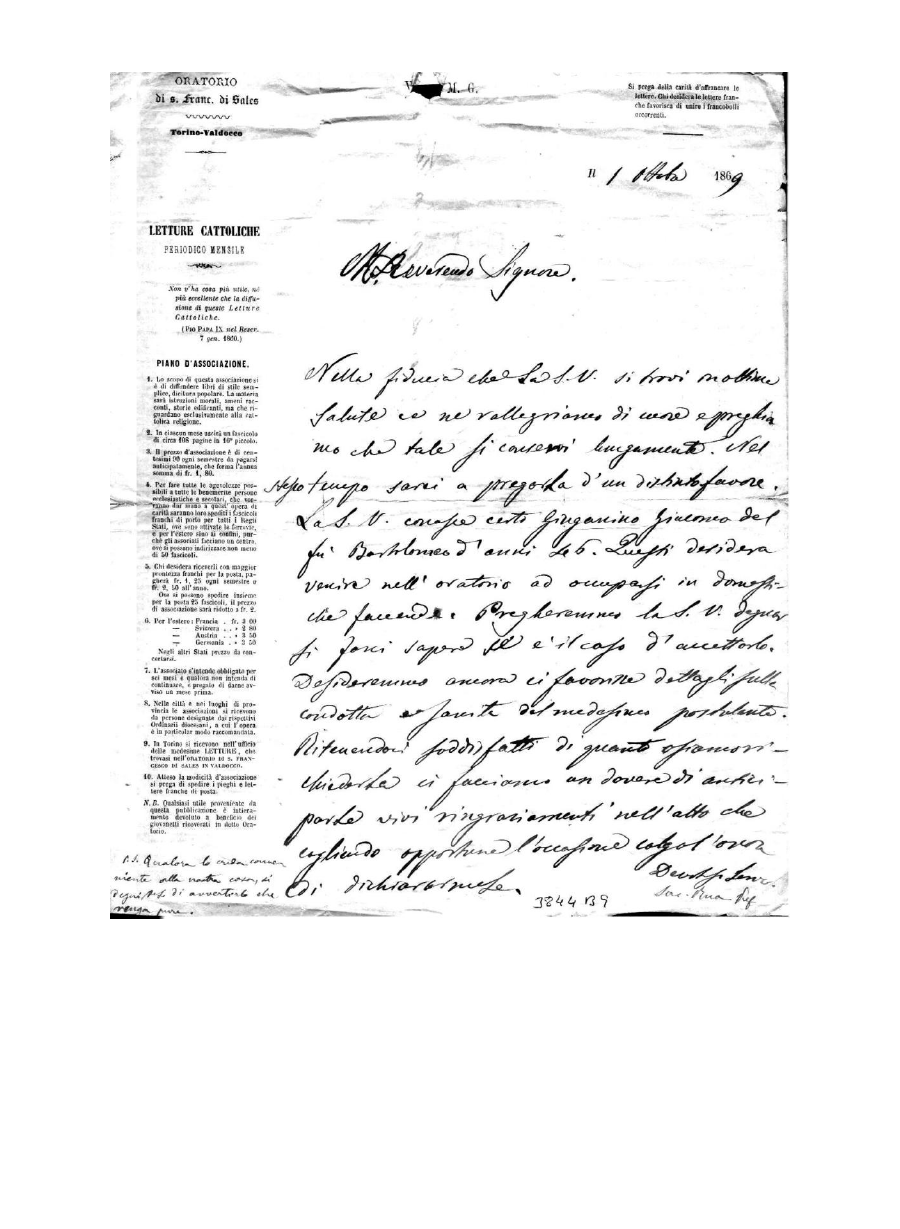 ORATORIO
di s. Franc. di Sales
Torino-Valdocco
V. M. G.
Si prega della carità d'affrancare le
lettere. Chi desidera le lettere fran-
che favorisca di unire i francobolli
occorrenti.
Il 1 Ottobre 1869
LETTURE CATTOLICHE
PERIODICO MENSILE
Non v'ha cosa più utile, nè
più eccellente che la diffu-
sione di queste Letture
Cattoliche.
(PIO PAPA IX. nel Rescr.
7 gen. 1860.)
PIANO D'ASSOCIAZIONE.
1. Lo scopo di questa associazione si
è di diffondere libri di stile sem-
plice, dicitura popolare. La materia
sarà istruzioni morali, ameni rac-
conti, storie edificanti, ma che ri-
guardano esclusivamente alla cat-
tolica religione.
2. In ciascun mese uscirà un fascicolo
di circa 108 pagine in 16° piccolo.
3. Il prezzo d'associazione è di cen-
tesimi 90 ogni semestre da pagarsi
anticipatamente, che forma l'annua
somma di fr. 1, 80.
4. Per fare tutte le agevolezze pos-
sibili a tutte le benemerite persone
ecclesiastiche e secolari, che vor-
ranno dar mano a quest' opera di
carità saranno loro spediti i fascicoli
franchi di porto per tutti i Regii
Stati, ove sono attivate le ferrovie,
e per l'estero sino ai confini, pur-
chè gli associati facciano un centro,
ove si possano indirizzare non meno
di 50 fascicoli.
5. Chi desidera riceverli con maggior
prontezza franchi per la posta, pa-
gherà fr. 1, 25 ogni semestre o
fr. 2, 50 all'anno.
Ove si possano spedire insieme
per la posta 25 fascicoli, il prezzo
di associazione sarà ridotto a fr. 2.
6. Per l'estero: Francia . fr. 3 00
— Svizzera . . » 2 80
— Austria . . » 3 50
— Germania . » 3 50
Negli altri Stati prezzo da con-
certarsi.
7. L'associato s'intende obbligato per
sei mesi e qualora non intenda di
continuare, è pregato di darne av-
viso un mese prima.
8. Nelle città e nei luoghi di pro-
vincia le associazioni si ricevono
da persone designate dai rispettivi
Ordinarii diocesani, a cui l'opera
è in particolar modo raccomandata.
9. In Torino si ricevono nell'ufficio
delle medesime LETTURE, che
trovasi nell'ORATORIO DI S. FRAN-
CESCO DI SALES IN VALDOCCO.
10. Atteso la modicità d'associazione
si prega di spedire i pieghi e let-
tere franche di posta.
N. B. Qualsiasi utile proveniente da
questa pubblicazione è intiera-
mente devoluto a beneficio dei
giovanetti ricoverati in detto Ora-
torio.
M. Reverendo Signore.
Nella fiducia che La S. V. si trovi in ottima
salute ce ne rallegriamo di cuore e preghia
mo che tale si conservi lungamente. Nel
stesso tempo sarei a pregarla d'un distinto favore.
La S. V. conosce certo Giuganino Giacomo del
fu Bartolomeo d'anni 26. Questi desidera
venire nell'oratorio ad occuparsi in domesti-
che faccende. Pregheremmo la S. V. degnar
si farci sapere se è il caso d'accettarlo.
Desideremmo ancora ci favorisse dettagli sulla
condotta e sanità del medesimo postulante.
Ritenendoci soddisfatti di quanto osiamo ri-
chiederla ci facciamo un dovere di antici-
parle vivi ringraziamenti nell'atto che
cogliendo opportuna l'occasione colgo l'onore
di dichiararmele.
Devotiss. Serv.
Sac. Rua Pref.
P. S. Qualora lo creda conve
niente alla nostra casa, si
degni di avvertirlo che
venga pure.
3844 B9